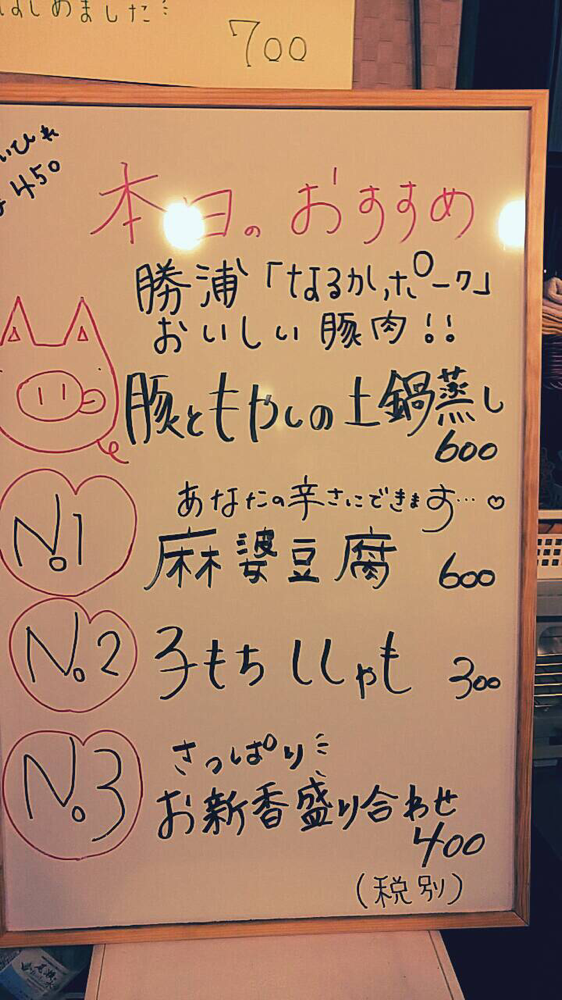 はじめました
700
いひれ
450
本日のおすすめ
勝浦「なるかポーク」
おいしい豚肉!!
豚ともやしの土鍋蒸し
600
あなたの辛さにできます…♡
No.1
麻婆豆腐 600
No.2
子もちししゃも 300
No.3
さっぱり
お新香盛り合わせ
400
(税別)